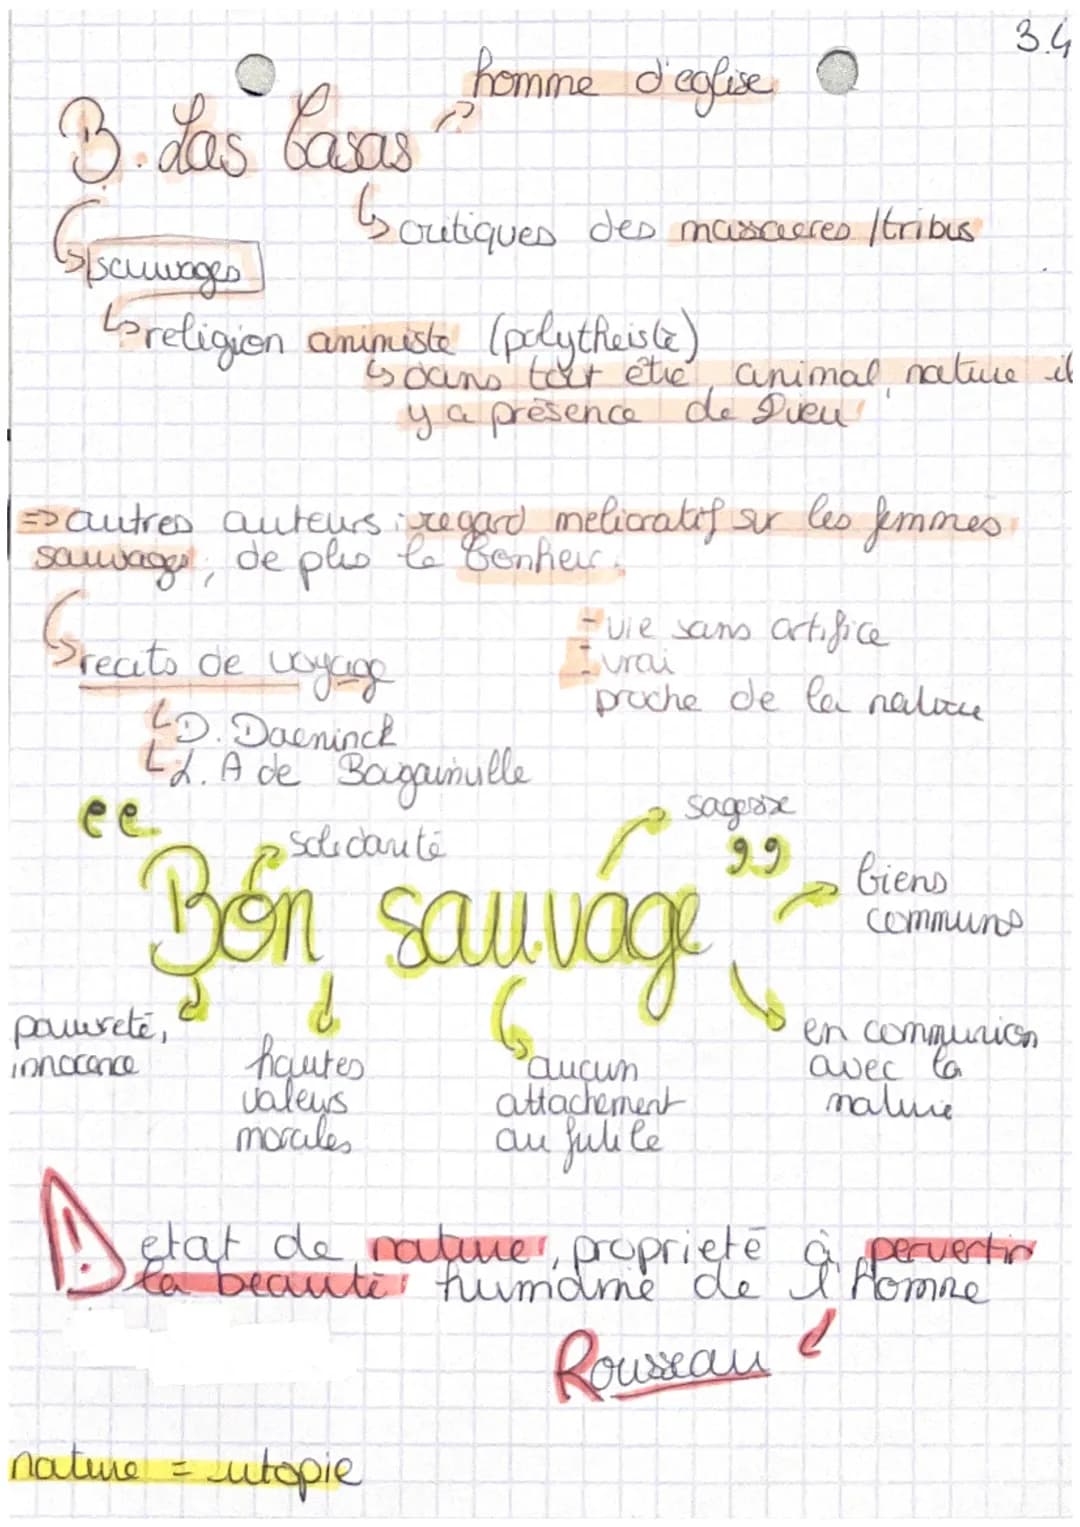 3.4
homme d'eglise
B. Las Casas
critiques des massacres /tribus
sauvages
religion animiste (polytheiste)
dans tout être, animal, nature il
y a présence de Dieu
=> autres auteurs : regard melioratif sur les femmes
sauvages, de plus le bonheur.
- vie sans artifice
recits de voyage
- vrai
proche de la nature
D. Daeninck
L. A de Bougainville
sagesse
solidarité
"Bon sauvage"
biens
communs
pauvreté,
innocence
hautes
valeurs
morales
aucun
attachement
au futile
en communion
avec la
nature
! etat de nature, propriété à pervertir
la beauté humaine de l'homme
Rousseau
nature = utopie